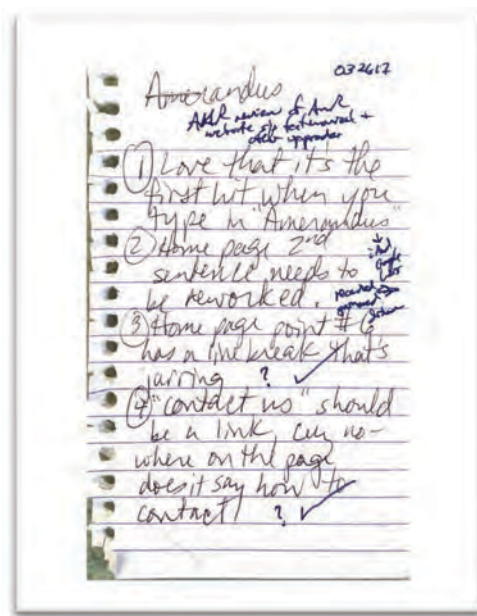 032617
Amerandus
review of
website testimonial +
other upgrades
① Love that it's the
first hit when you
type in "Amerandus"
② Home page 2nd
sentence needs to
be reworked.
③ Home page point #6
has a line break that's
jarring ? ✓
④ "contact us" should
be a link, cuz no-
where on the page
does it say how to
contact ? ✓